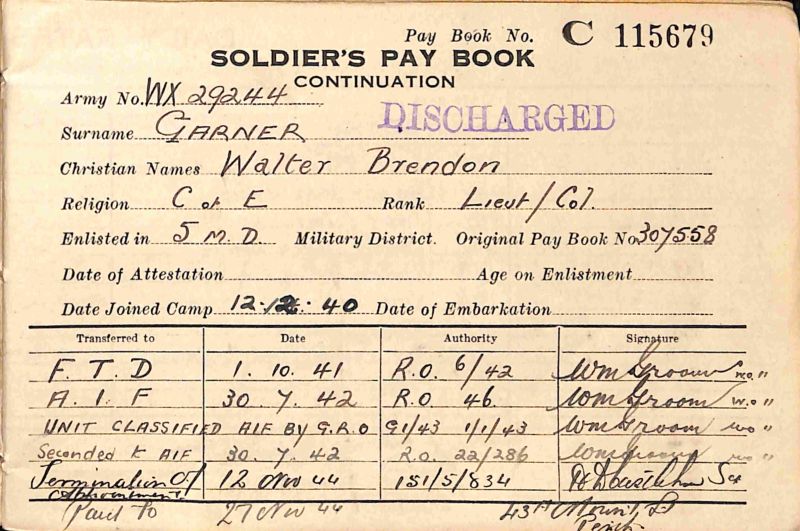 Pay Book No. C 115679
SOLDIER'S PAY BOOK
CONTINUATION
Army No. WX 29244
DISCHARGED
Surname GARNER
Christian Names Walter Brendon
Religion C of E Rank Lieut/Col.
Enlisted in 5 M.D. Military District. Original Pay Book No. 307558
Date of Attestation Age on Enlistment
Date Joined Camp 12.12.40 Date of Embarkation
Transferred to Date Authority Signature
F.T.D 1.10.41 R.O. 6/42 Wm Groom W.O "
A.I.F 30.7.42 R.O 46. Wm Groom W.O "
UNIT CLASSIFIED AIF BY G.R.O G1/43 1/1/43 Wm Groom WO "
Seconded to AIF 30.7.42 R.O. 22/286 Wm Groom WO "
Termination of Appointment 12 Nov 44 151/5/834
Paid to 27 Nov 44 43 Mount St
Perth